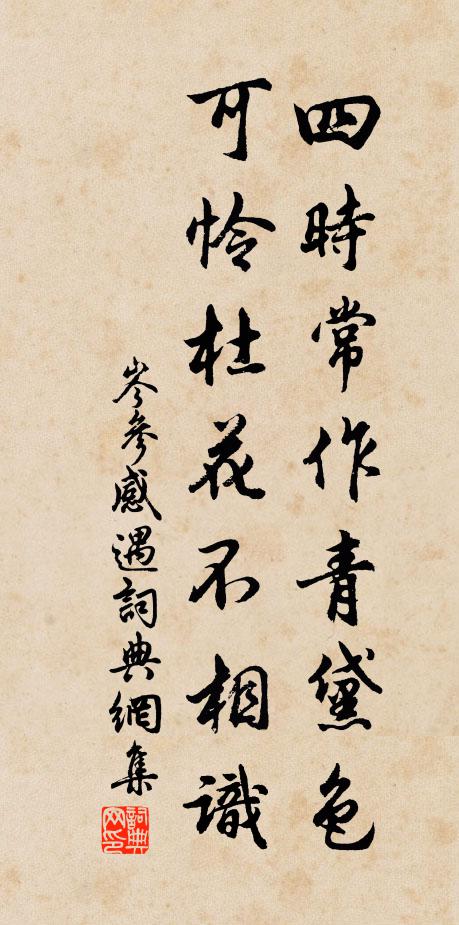 四時常作青黛色
可憐杜花不相識
岑參感遇詞典網集
詞典
网印